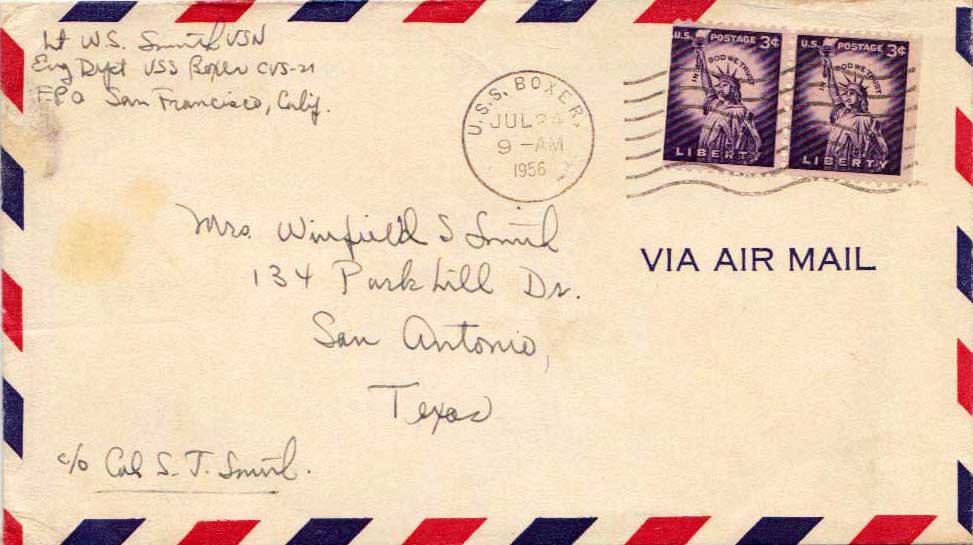 Lt W.S. Smith USN
Eng Dept USS Boxer CVS-21
F.P.O San Francisco, Calif.
U.S.S. BOXER.
JUL 24
9-AM
1956
U.S. POSTAGE 3¢
IN GOD WE TRUST
LIBERTY
U.S. POSTAGE 3¢
IN GOD WE TRUST
LIBERTY
VIA AIR MAIL
Mrs. Winfield S Smith
134 Park Hill Dr.
San Antonio,
Texas
c/o Col S. T. Smith.